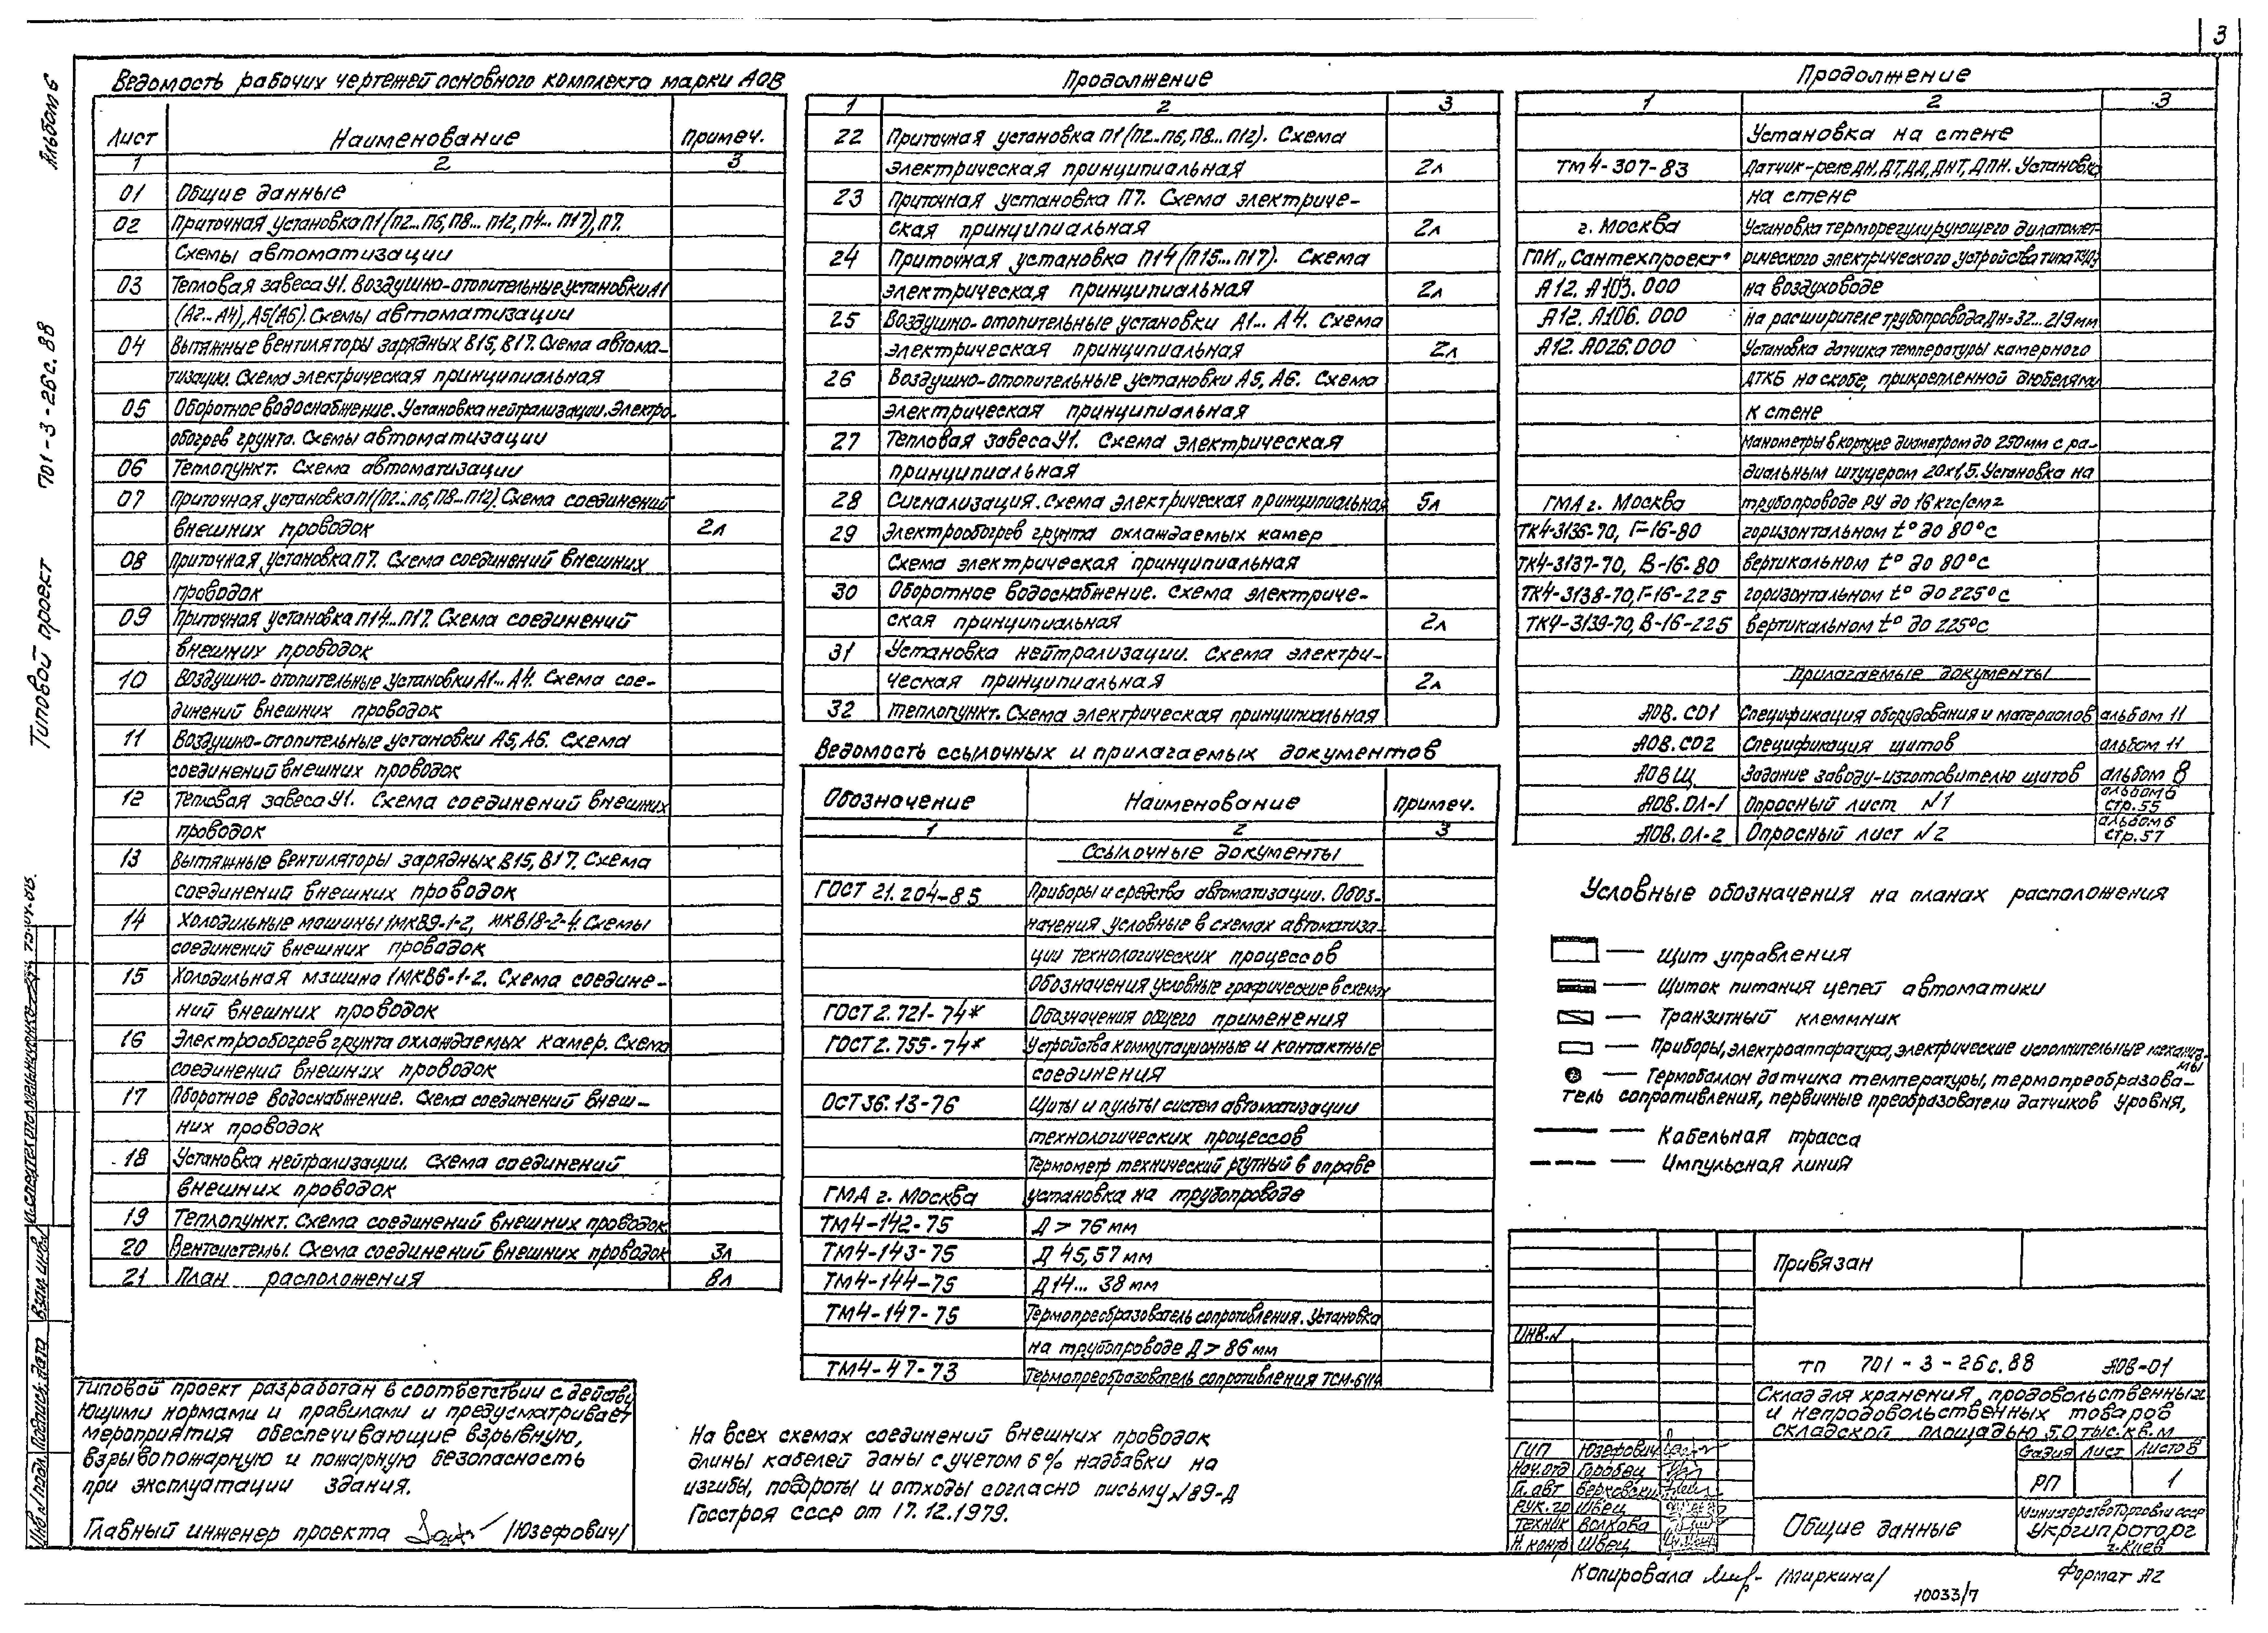 3
Альбом 6
701-3-26с.88
Типовой проект
Ведомость рабочих чертежей основного комплекта марки АОВ
Лист Наименование Примеч.
1 2 3
01 Общие данные
02 Приточная установка П1 (П2...П6, П8... П12, П4... П17), П7.
Схемы автоматизации
03 Тепловая завеса У1. Воздушно-отопительные установки А1
(А2...А4), А5(А6). Схемы автоматизации
04 Вытяжные вентиляторы зарядных В15, В17. Схема автома-
тизации. Схема электрическая принципиальная
05 Оборотное водоснабжение. Установка нейтрализации. Электро-
обогрев грунта. Схемы автоматизации
06 Теплопункт. Схема автоматизации
07 Приточная установка П1 (П2...П6, П8...П12). Схема соединений
внешних проводок 2л
08 Приточная установка П7. Схема соединений внешних
проводок
09 Приточная установка П14...П17. Схема соединений
внешних проводок
10 Воздушно-отопительные установки А1... А4. Схема сое-
динений внешних проводок
11 Воздушно-отопительные установки А5, А6. Схема
соединений внешних проводок
12 Тепловая завеса У1. Схема соединений внешних
проводок
13 Вытяжные вентиляторы зарядных В15, В17. Схема
соединений внешних проводок
14 Холодильные машины 1МКВ9-1-2, МКВ18-2-4. Схемы
соединений внешних проводок
15 Холодильная машина 1МКВ6-1-2. Схема соедине-
ний внешних проводок
16 Электрообогрев грунта охлаждаемых камер. Схема
соединений внешних проводок
17 Оборотное водоснабжение. Схема соединений внеш-
них проводок
18 Установка нейтрализации. Схема соединений
внешних проводок
19 Теплопункт. Схема соединений внешних проводок
20 Вентсистемы. Схема соединений внешних проводок 3л
21 План расположения 8л
Продолжение
1 2 3
22 Приточная установка П1 (П2...П6, П8... П12). Схема
электрическая принципиальная 2л
23 Приточная установка П7. Схема электриче-
ская принципиальная 2л
24 Приточная установка П14 (П15... П17). Схема
электрическая принципиальная 2л
25 Воздушно-отопительные установки А1... А4. Схема
электрическая принципиальная 2л
26 Воздушно-отопительные установки А5, А6. Схема
электрическая принципиальная
27 Тепловая завеса У1. Схема электрическая
принципиальная
28 Сигнализация. Схема электрическая принципиальная 5л
29 Электрообогрев грунта охлаждаемых камер
Схема электрическая принципиальная
30 Оборотное водоснабжение. Схема электриче-
ская принципиальная 2л
31 Установка нейтрализации. Схема электри-
ческая принципиальная 2л
32 Теплопункт. Схема электрическая принципиальная
Ведомость ссылочных и прилагаемых документов
Обозначение Наименование Примеч.
1 2 3
Ссылочные документы
ГОСТ 21.204-85 Приборы и средства автоматизации. Обоз-
начения условные в схемах автоматиза-
ции технологических процессов
Обозначения условные графические в схемах
ГОСТ 2.721-74* Обозначения общего применения
ГОСТ 2.755-74* Устройства коммутационные и контактные
соединения
ОСТ 36.13-76 Щиты и пульты систем автоматизации
технологических процессов
Термометр технический ртутный в оправе
ГМА г. Москва установка на трубопроводе
ТМ4-142-75 Д > 76 мм
ТМ4-143-75 Д 45,57 мм
ТМ4-144-75 Д 14... 38 мм
ТМ4-147-75 Термопреобразователь сопротивления. Установка
на трубопроводе Д > 86 мм
ТМ4-47-73 Термопреобразователь сопротивления ТСМ-6114
Продолжение
1 2 3
Установка на стене
ТМ4-307-83 Датчик-реле ДН, ДТ, ДД, ДНТ, ДПН. Установка
на стене
г. Москва Установка терморегулирующего дилатомет-
ГПИ „Сантехпроект" рического электрического устройства типа ТУДЭ
А12. А103.000 на воздуховоде
А12. А106.000 на расширителе трубопровода Дн=32...219мм
А12. А026.000 Установка датчика температуры камерного
ДТКБ на скобе, прикрепленной дюбелями
к стене
Манометры в корпусе диаметром до 250мм с ра-
диальным штуцером 20х1,5. Установка на
ГМА г. Москва трубопроводе Ру до 16 кгс/см2
ТК4-3136-70, Г-16-80 горизонтальном t° до 80°С
ТК4-3137-70, В-16-80 вертикальном t° до 80°С
ТК4-3138-70, Г-16-225 горизонтальном t° до 225°С
ТК4-3139-70, В-16-225 вертикальном t° до 225°С
Прилагаемые документы
АОВ. СО1 Спецификация оборудования и материалов альбом 11
АОВ. СО2 Спецификация щитов альбом 11
АОВ Щ Задание заводу-изготовителю щитов альбом 8
АОВ.ОЛ-1 Опросный лист №1 альбом 6 стр.55
АОВ.ОЛ-2 Опросный лист №2 альбом 6 стр.57
Условные обозначения на планах расположения
— Щит управления
— Щиток питания цепей автоматики
— Транзитный клеммник
— Приборы, электроаппаратура, электрические исполнительные механиз-
мы
— Термобаллон датчика температуры, термопреобразова-
тель сопротивления, первичные преобразователи датчиков уровня,
— Кабельная трасса
— Импульсная линия
Типовой проект разработан в соответствии с действу
ющими нормами и правилами и предусматривает
мероприятия обеспечивающие взрывную,
взрывопожарную и пожарную безопасность
при эксплуатации здания.
Главный инженер проекта /Юзефович/
На всех схемах соединений внешних проводок
длины кабелей даны с учетом 6% надбавки на
изгибы, повороты и отходы согласно письму №89-Д
Госстроя СССР от 17.12.1979.
Привязан
Инв.№
ТП 701-3-26с.88 АОВ-01
Склад для хранения продовольственных
и непродовольственных товаров
складской площадью 5.0 тыс.кв.м
ГИП Юзефович
Нач.отд Горобец
Гл. авт Берковский
Рук. гр Швец
Техник Волкова
Н. контр Швец
Стадия Лист Листов
РП 1
Общие данные
Министерство Торговли СССР
Укргипроторг
г. Киев
Копировала /Миркина/
Формат А2
10033/7
Инв.№ подл. Подпись, дата Взам.инв.№